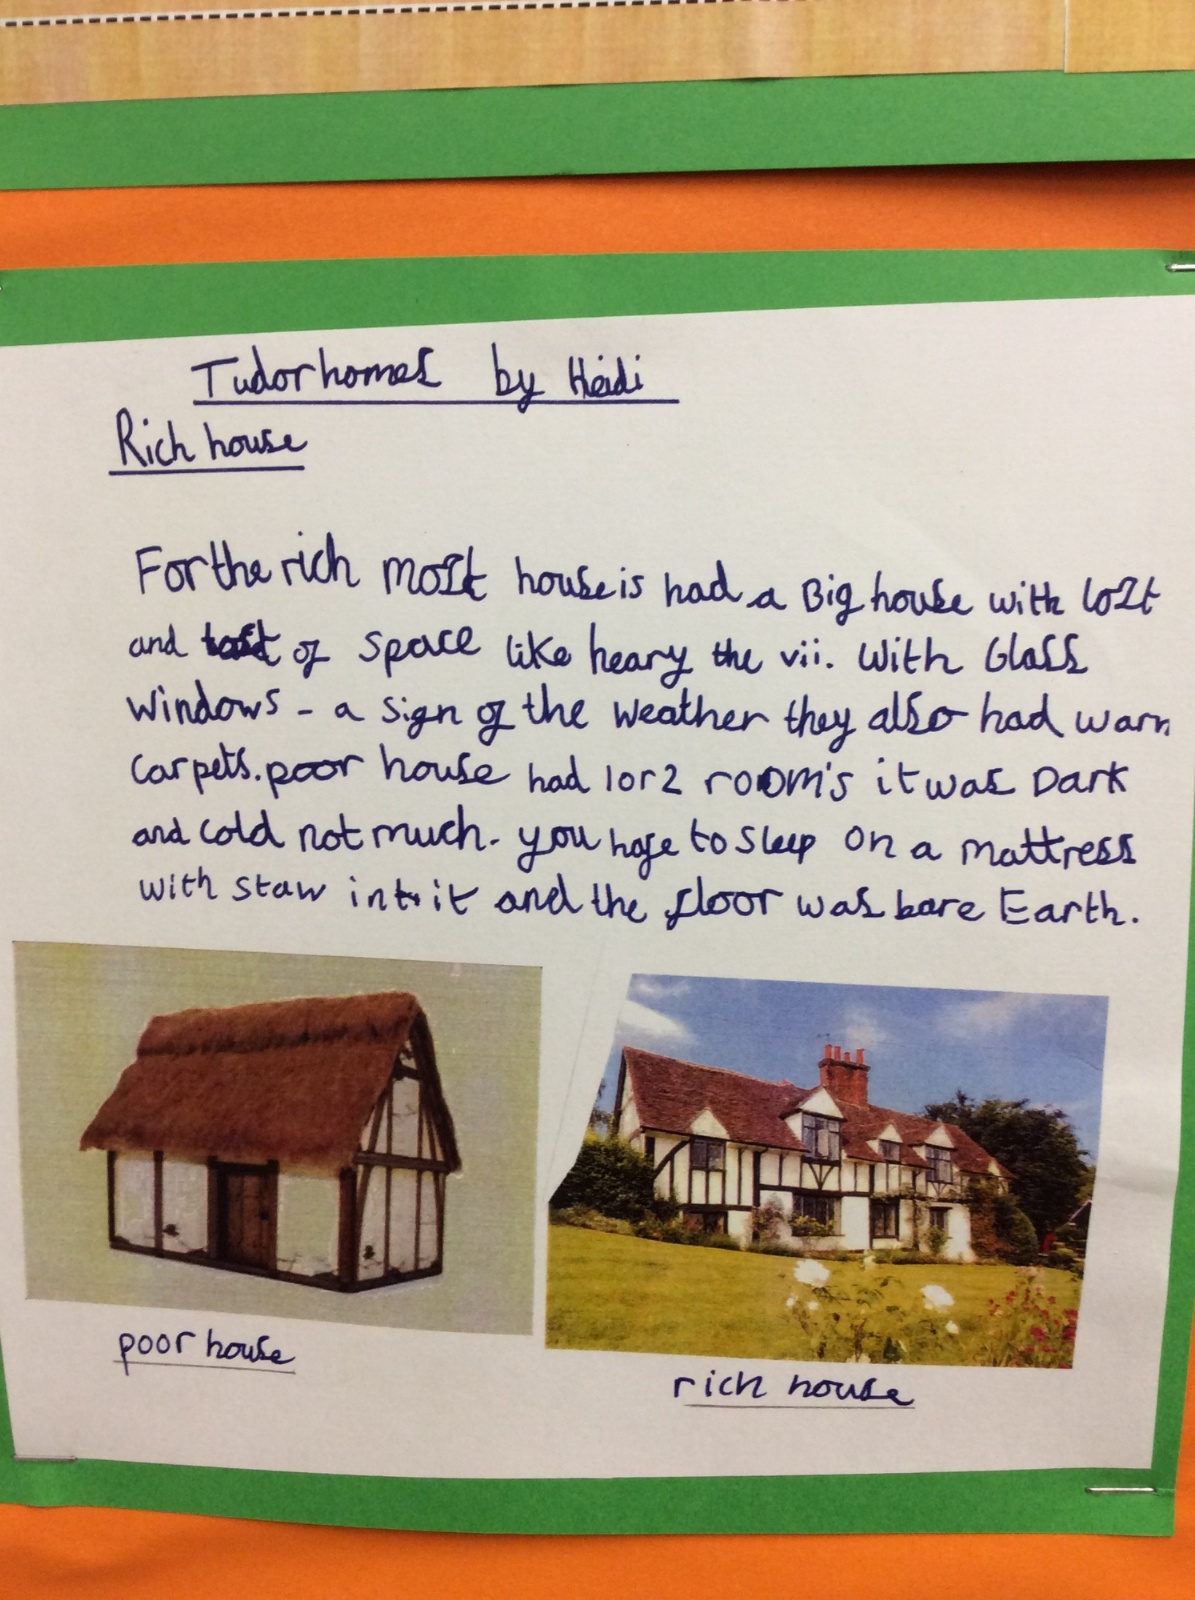 Tudor homes by Heidi
Rich house
For the rich most house is had a Big house with lost
and of space like heary the vii. With Glass
windows - a sign of the weather they also had warm
carpets. poor house had 1 or 2 room's it was Dark
and cold not much. you have to sleep on a mattress
with staw in it and the floor was bare Earth.
poor house
rich house